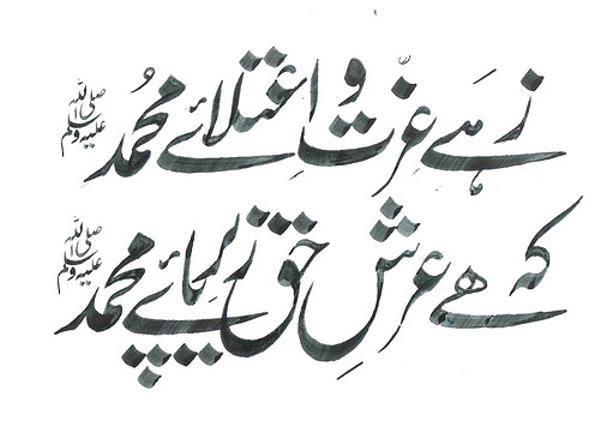 زہے عزّت و اعتلائے مُحمد صلی اللہ علیہ وسلم
کہ ھے عرشِ حق زیرِ پائے محمد صلی اللہ علیہ وسلم